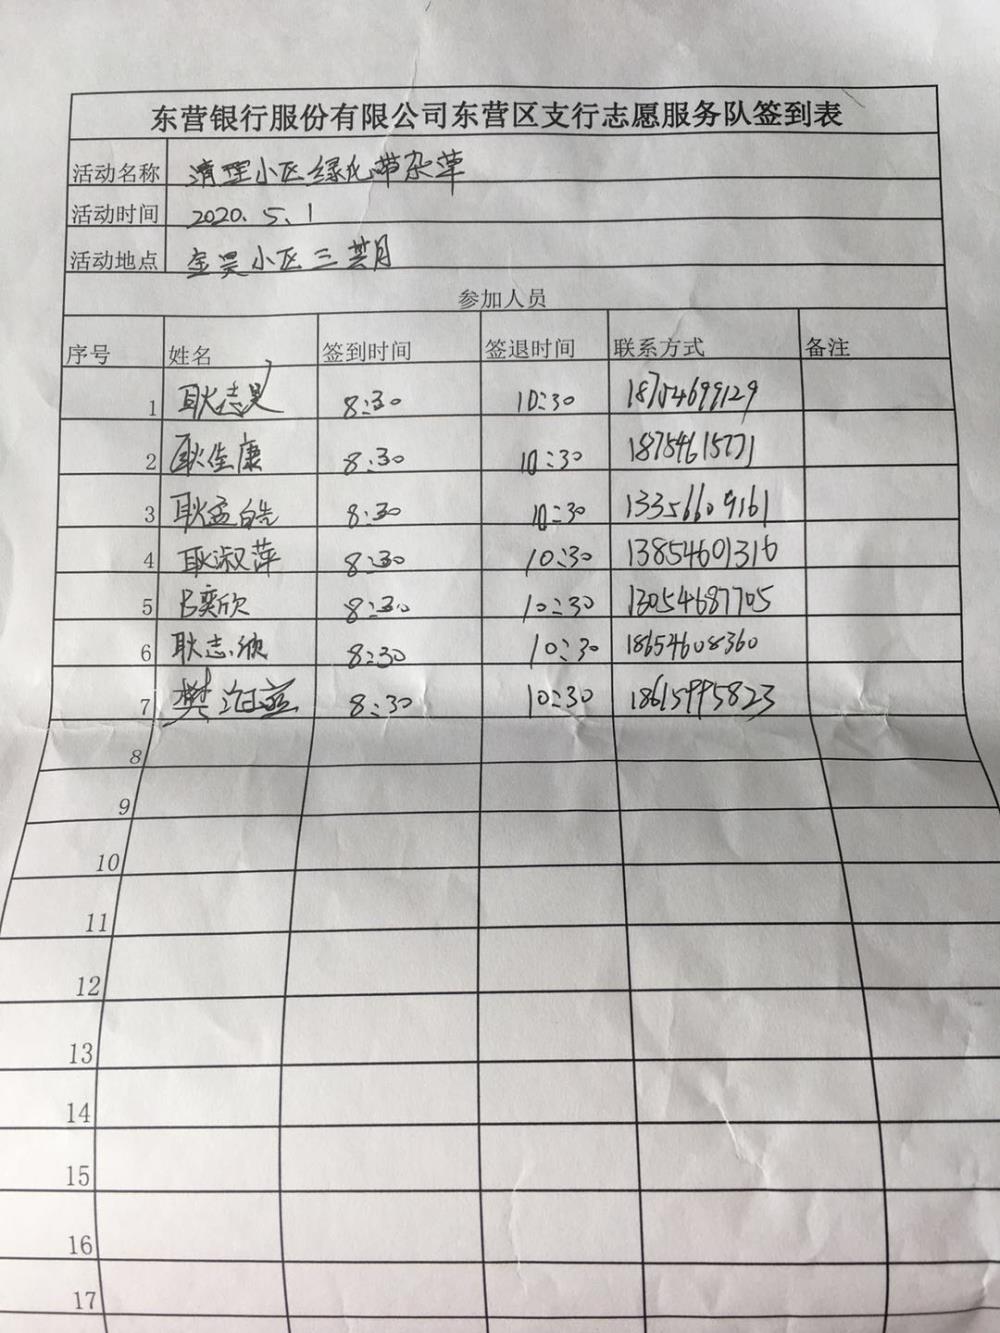 东营银行服份有限公司东营区支行志愿服务队签到表
活动名称 清理小区绿化带杂草
活动时间 2020.5.1
活动地点 金昊小区三芸月
参加人员
序号 姓名 签到时间 签退时间 联系方式 备注
1 耿志昊 8:30 10:30 18754699129
2 耿佳康 8:30 10:30 18754615771
3 耿孟皓 8:30 10:30 13356609161
4 耿淑萍 8:30 10:30 13854601316
5 奕欣 8:30 10:30 13054687705
6 耿志 8:30 10:30 18654608360
7 樊 8:30 10:30 18615995823
8
9
10
11
12
13
14
15
16
17